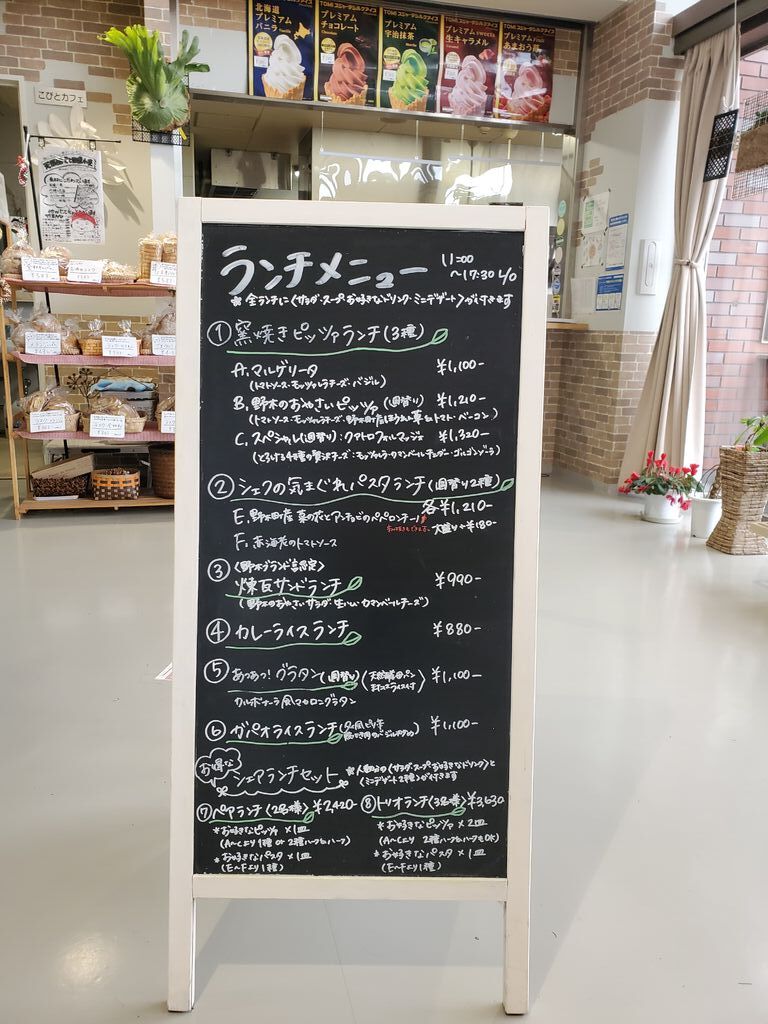 北海道
プレミアム
バニラ
プレミアム
チョコレート
プレミアム
宇治抹茶
プレミアム
生キャラメル
プレミアム
あまおう苺
こびとカフェ
ランチメニュー 11:00
〜17:30 L/O
※全ランチに〈サラダ・スープ・お好きなドリンク・ミニデザート〉が付きます
① 窯焼きピッツァランチ(3種)
A. マルゲリータ ¥1,100-
(トマトソース・モッツァレラチーズ・バジル)
B. 野木のおやさいピッツァ(週替り) ¥1,210-
(トマトソース・モッツァレラチーズ・野木町産ほうれん草&トマト・ベーコン)
C. スペシャル(週替り):クアトロフォルマッジョ ¥1,320-
(とろける4種の贅沢チーズ:モッツァレラ・カマンベール・チェダー・ゴルゴンゾーラ)
② シェフの気まぐれパスタランチ(週替り2種)
各¥1,210-
E. 野木町産 菜の花とアンチョビのペペロンチーノ
大盛り+¥180-
F. 赤海老のトマトソース
③ 〈野木ブランド認定〉
煉瓦サンドランチ ¥990-
(野木のおやさいサラダ・生ハム・カマンベールチーズ)
④ カレーライスランチ ¥880-
⑤ あつあつ!グラタン(週替り) ¥1,100-
カルボナーラ風マカロニグラタン
⑥ ガパオライスランチ ¥1,100-
お得な
シェアランチセット ※人数分の〈サラダ・スープ・お好きなドリンク〉と
〈ミニデザート2種〉が付きます
⑦ ペアランチ(2名様)¥2,420-
*お好きなピッツァ×1皿
(A〜Cより1種 or 2種ハーフ&ハーフ)
*お好きなパスタ×1皿
(E〜Fより1種)
⑧ トリオランチ(3名様)¥3,630-
*お好きなピッツァ×2皿
(A〜Cより 2種ハーフ&ハーフもOK)
*お好きなパスタ×1皿
(E〜Fより1種)